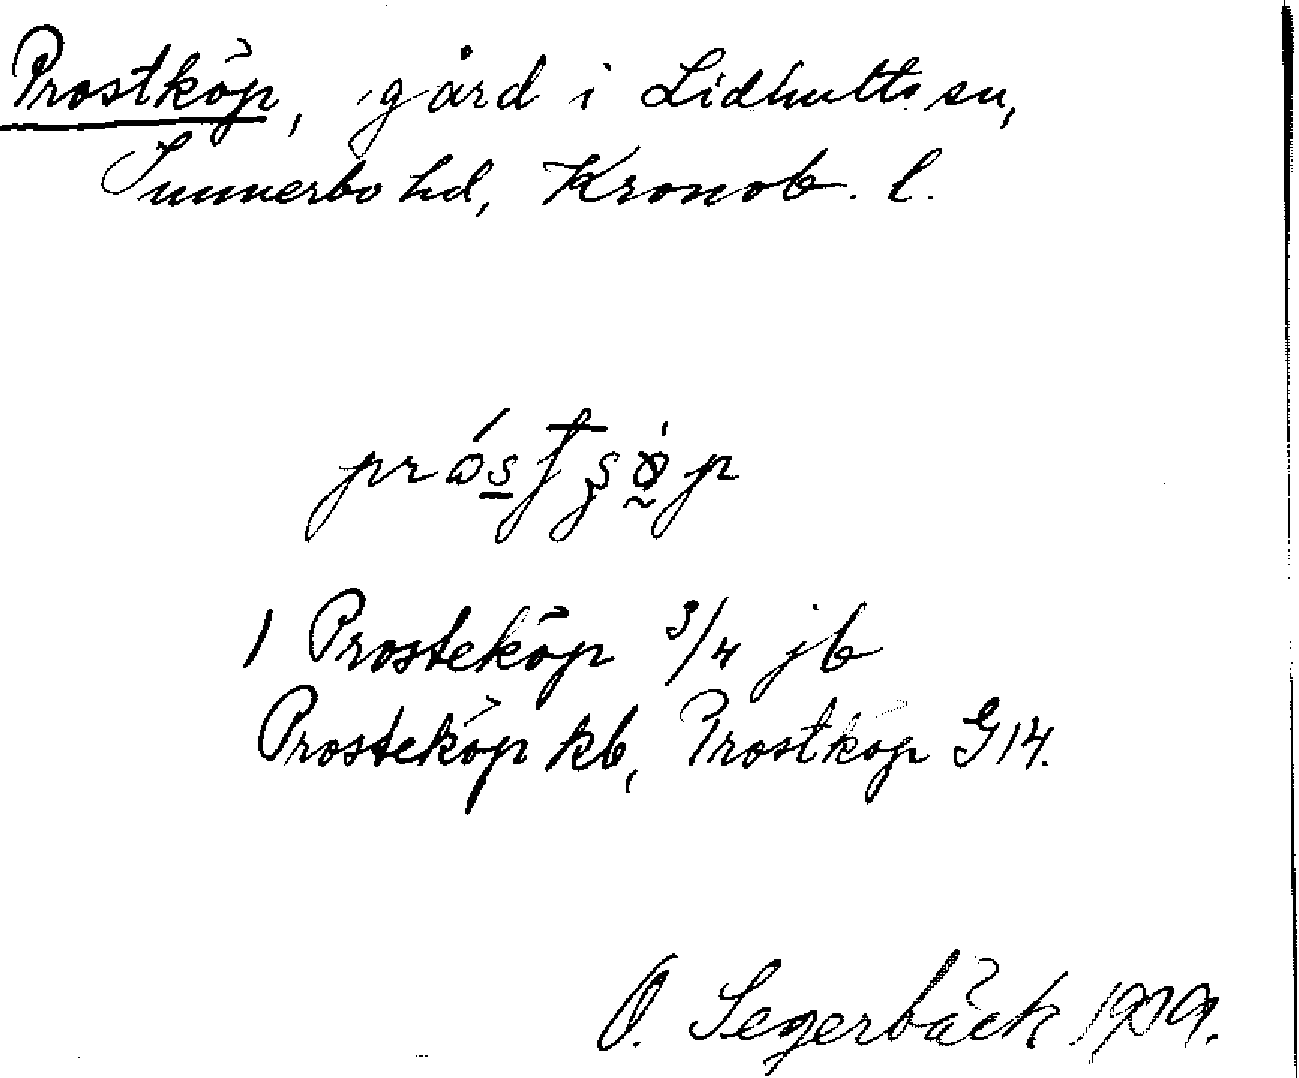 Prostköp, gård i Lidhults sn,
Sunnerbo hd, Kronob. l.
1 Prosteköp 3/4 jb
Prosteköp kb, Prostköp G 14.
O. Segerbäck 1919.